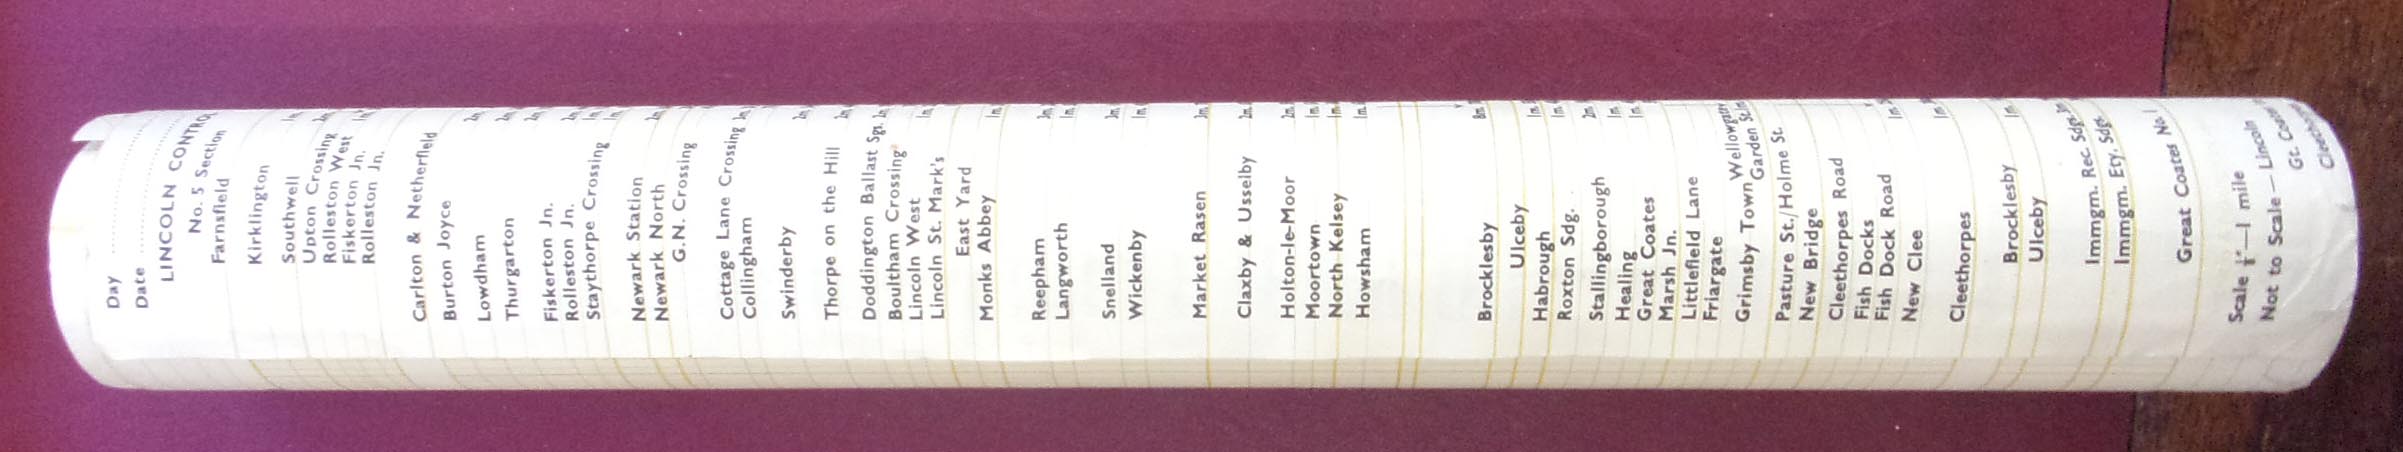 Day
Date
LINCOLN CONTROL
No. 5 Section
Farnsfield
Kirklington
Southwell
Upton Crossing
Rolleston West
Fiskerton Jn.
Rolleston Jn.
Carlton & Netherfield
Burton Joyce
Lowdham
Thurgarton
Fiskerton Jn.
Rolleston Jn.
Staythorpe Crossing
Newark Station
Newark North
G.N. Crossing
Cottage Lane Crossing
Collingham
Swinderby
Thorpe on the Hill
Doddington Ballast Sgs.
Boultham Crossing
Lincoln West
Lincoln St. Mark's
East Yard
Monks Abbey
Reepham
Langworth
Snelland
Wickenby
Market Rasen
Claxby & Usselby
Holton-le-Moor
Moortown
North Kelsey
Howsham
Brocklesby
Ulceby
Habrough
Roxton Sdg.
Stallingborough
Healing
Great Coates
Marsh Jn.
Littlefield Lane
Friargate
Grimsby Town Wellowgate
Garden St.
Pasture St./Holme St.
New Bridge
Cleethorpes Road
Fish Docks
Fish Dock Road
New Clee
Cleethorpes
Brocklesby
Ulceby
Immgm. Rec. Sdgs.
Immgm. Ety. Sdgs.
Great Coates No. 1
Scale — 1 mile
Not to Scale — Lincoln
Gt. Coates